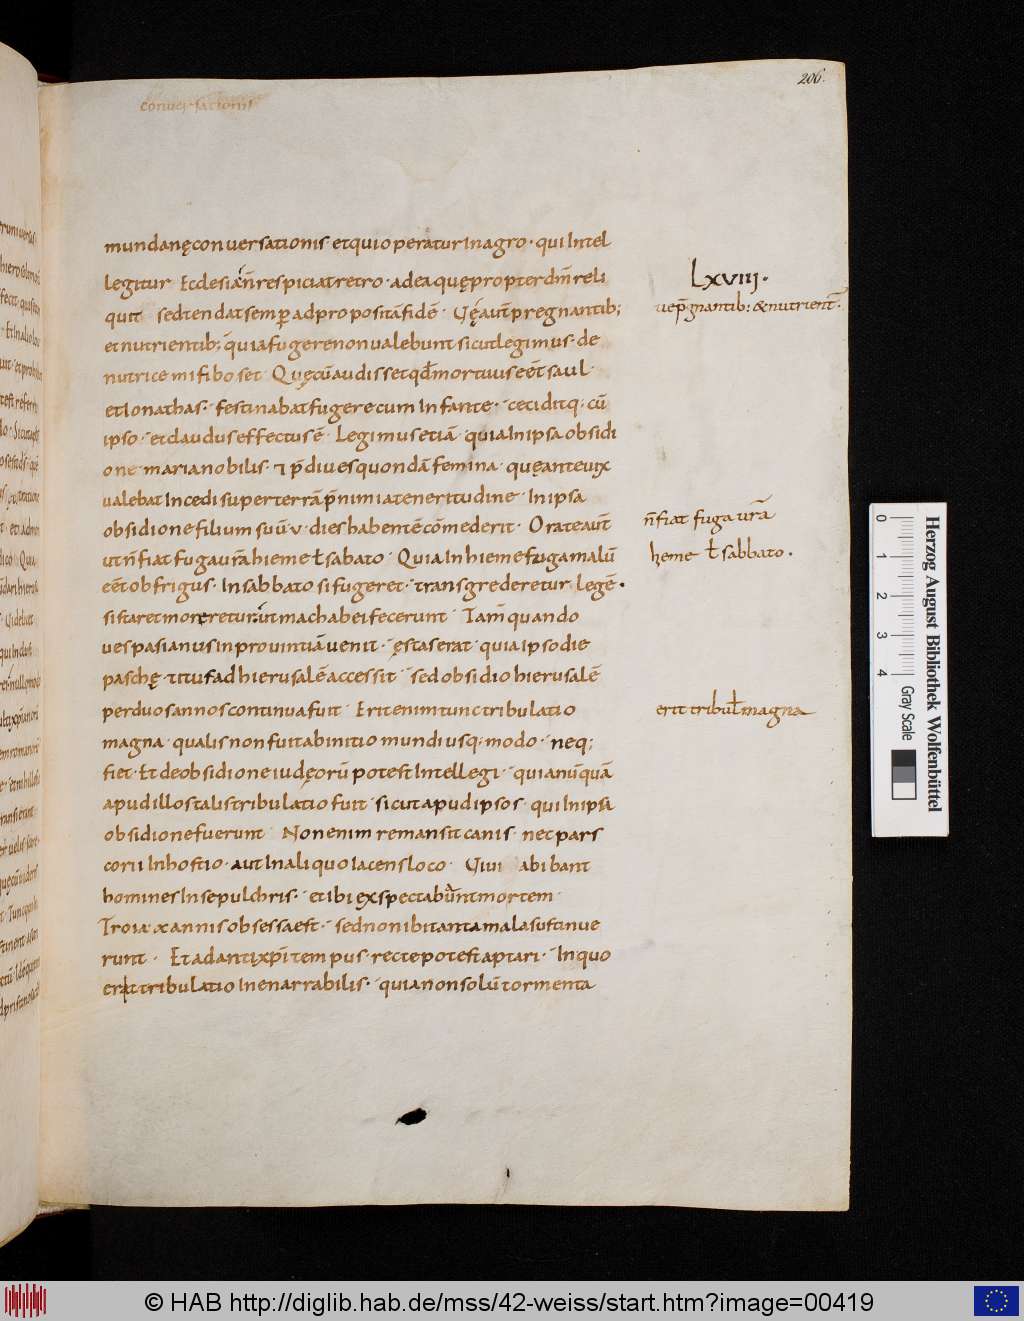 206.
conuersationis
mundanę conuersationis · et qui operatur in agro · qui Intel
legitur Ecclesia · n̄ respiciat retro · ad ea quę propter dm̄ reli
quit sed tendat semp̱ ad proposita fidē · Uę aut̄ pregnantib;
et nutrientib; quia fugere non ualebunt sicut legimus · de
nutrice mifiboset · Quę cū audisset qd̄ mortuus eēt saul ·
et Ionathas · festinabat fugere cum Infante · ceciditq · cū
ipso · et claudus effectus ē · Legimus etiā · quia In ipsa obsidi
one maria nobilis · ⁊ p̄diues quondā femina · quę ante uix
ualebat Incedi super terrā p̄ nimia teneritudine · In ipsa
obsidione filium suū · v · dies habentē cōmederit · Orate aut̄
ut n̄ fiat fuga ur̄a hieme ł sabato · Quia In hieme fuga malū
eēt ob frigus · In sabbato si fugeret · transgrederetur legē ·
si staret moreretur · ut machabei fecerunt · Tam̄ quando
uespasianus in prouintiā uenit · ęstas erat · quia ipso die
paschę · titus ad hierusalē accessit · sed obsidio hierusalē
per duos annos continua fuit · Erit enim tunc tribulatio
magna · qualis non fuit ab initio mundi usq; modo · neq;
fiet · Et de obsidione iudęorū potest Intellegi · quia nūquā
apud illos talis tribulatio fuit · sicut apud ipsos · qui In ipsa
obsidione fuerunt · Non enim remansit canis · nec pars
corii In hostio · aut In aliquo Iacens loco · Uiui abibant
homines In sepulchris · et ibi exspectabunt mortem ·
Troia · x annis obsessa est · sed non ibi tanta mala sustinue
runt · Et ad antixp̄i tempus · recte potest aptari · In quo
erit tribulatio Inenarrabilis · quia non solū tormenta
Lxviii ·
ue p̄gnantib: & nutrient̄ ·
n̄ fiat fuga ur̄a
heme ł sabbato ·
erit tribul̄ magna
Herzog August Bibliothek Wolfenbüttel
0 1 2 3 4
Gray Scale
© HAB http://diglib.hab.de/mss/42-weiss/start.htm?image=00419